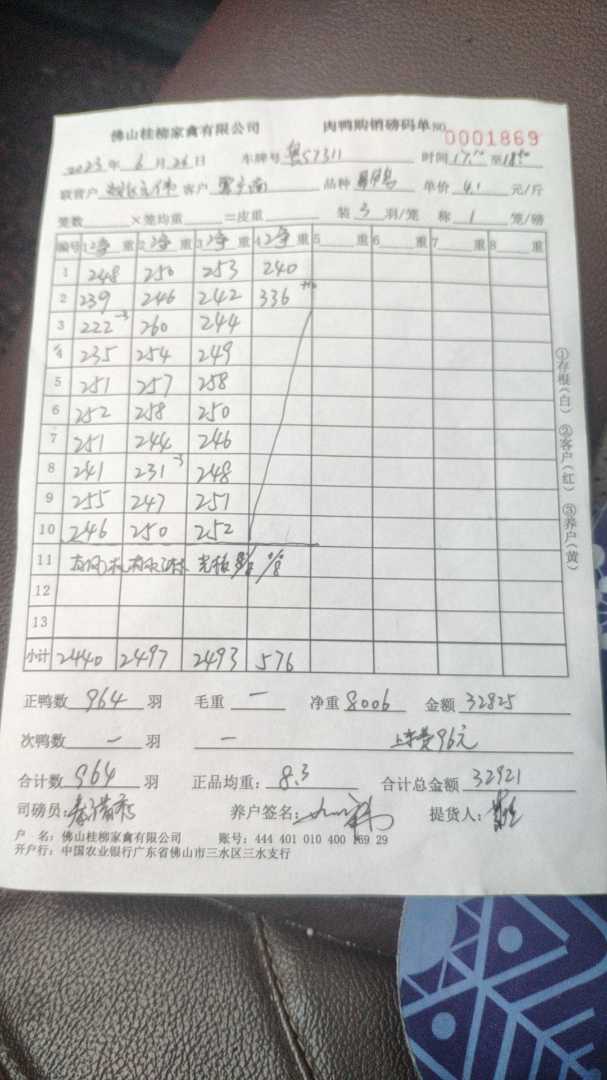 佛山桂柳家禽有限公司 肉鸭购销磅码单 NO 0001869
2023年 6月 26日 车牌号 粤S7311 时间 17 至 18
联营户 伟 客户 南 品种 鸭 单价 4.1 元/斤
笼数 ×笼均重 =皮重 装 3 羽/笼 称 1 笼/磅
编号 1 净 重 2 净 重 3 净 重 4 净 重 5 重 6 重 7 重 8 重
1 248 250 253 240
2 239 246 242 336
3 222 -3 260 244
4 235 254 249
5 251 257 258
6 252 258 250
7 251 244 246
8 241 231 -3 248
9 255 247 251
10 246 250 252
11
12
13
小计 2440 2497 2493 576
正鸭数 964 羽 毛重 一 净重 8006 金额 32825
次鸭数 一 羽 一 上车费96元
合计数 964 羽 正品均重: 8.3 合计总金额 32921
司磅员: 养户签名: 提货人:
户 名: 佛山桂柳家禽有限公司 账号: 444 401 010 400 169 29
开户行: 中国农业银行广东省佛山市三水区三水支行
①存根(白) ②客户(红) ③养户(黄)